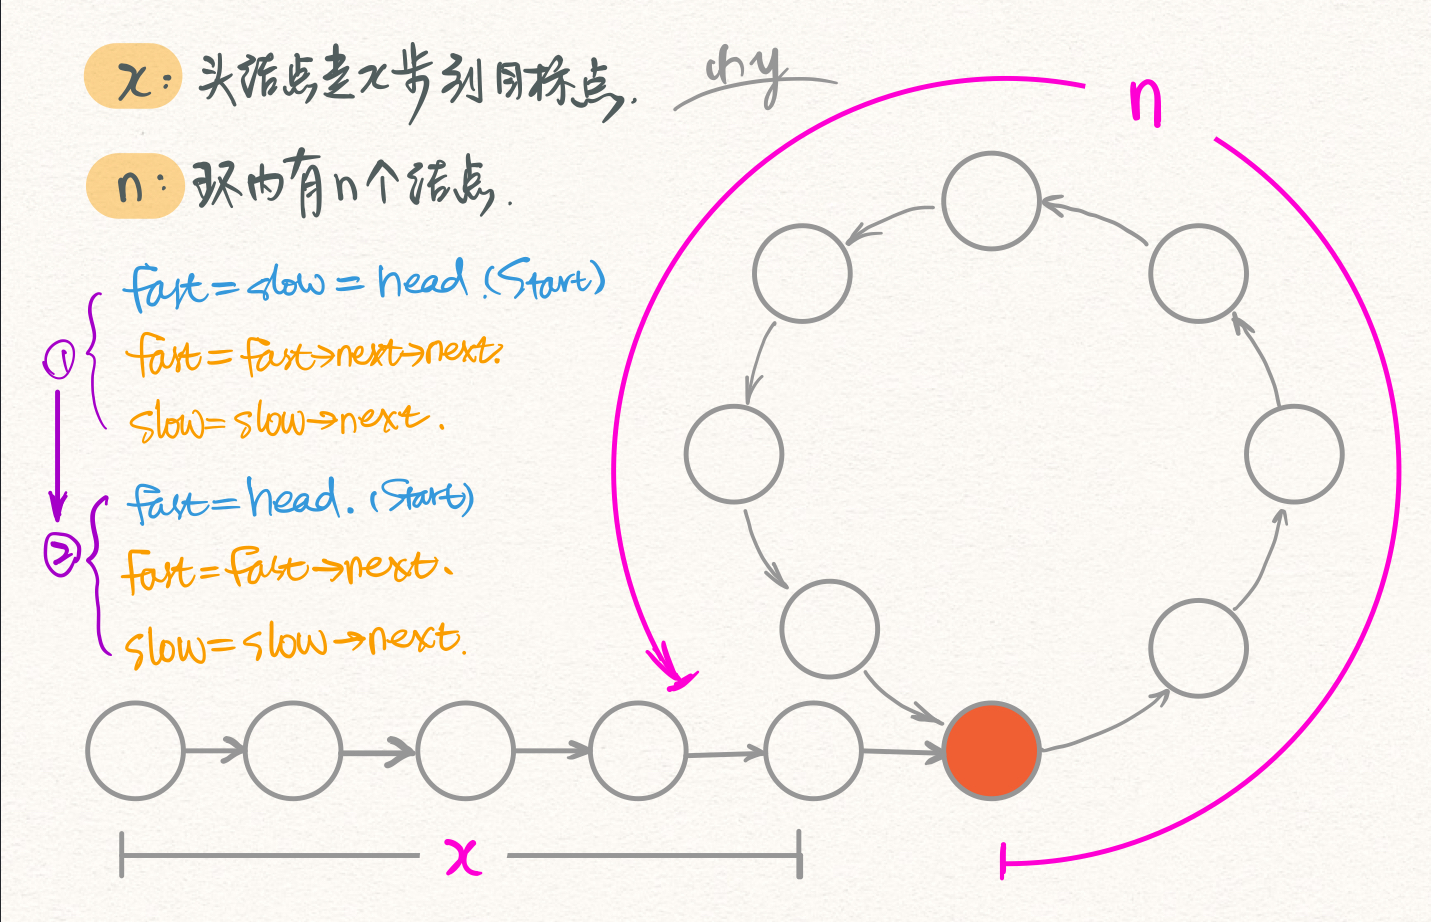 x: 头结点走x步到目标点.
chy
n
n: 环内有n个结点.
fast=slow=head.(Start)
① fast=fast→next→next.
slow=slow→next.
fast=head.(Start)
② fast=fast→next.
slow=slow→next.
x